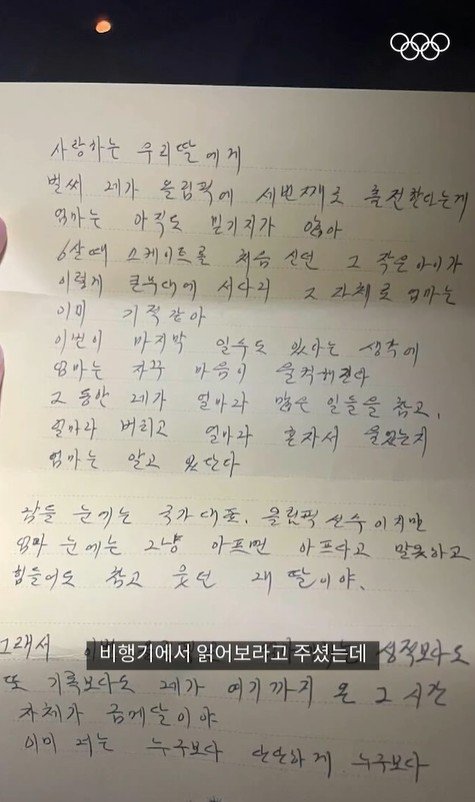 사랑하는 우리딸에게
벌써 네가 올림픽에 세번째로 출전한다는게
엄마는 아직도 믿기지가 않아
6살때 스케이트를 처음 신던 그 작은아이가
이렇게 큰무대에 서다니 그 자체로 엄마는
이미 기적같아
이번이 마지막 일수도 있다는 생각에
엄마는 자꾸 마음이 울컥해진다
그 동안 네가 얼마나 많은 일들을 참고,
얼마나 버티고 얼마나 혼자서 울었는지
엄마는 알고 있단다
남들 눈에는 국가대표, 올림픽 선수이지만
엄마 눈에는 그냥 아프면 아프다고 말못하고
힘들어도 참고 웃던 내 딸이야.
그래서 이번 성적보다도
비행기에서 읽어보라고 주셨는데
또 기록보다도 네가 여기까지 온 그 시간
자체가 금메달이야
이미 너는 누구보다 단단하게 누구보다